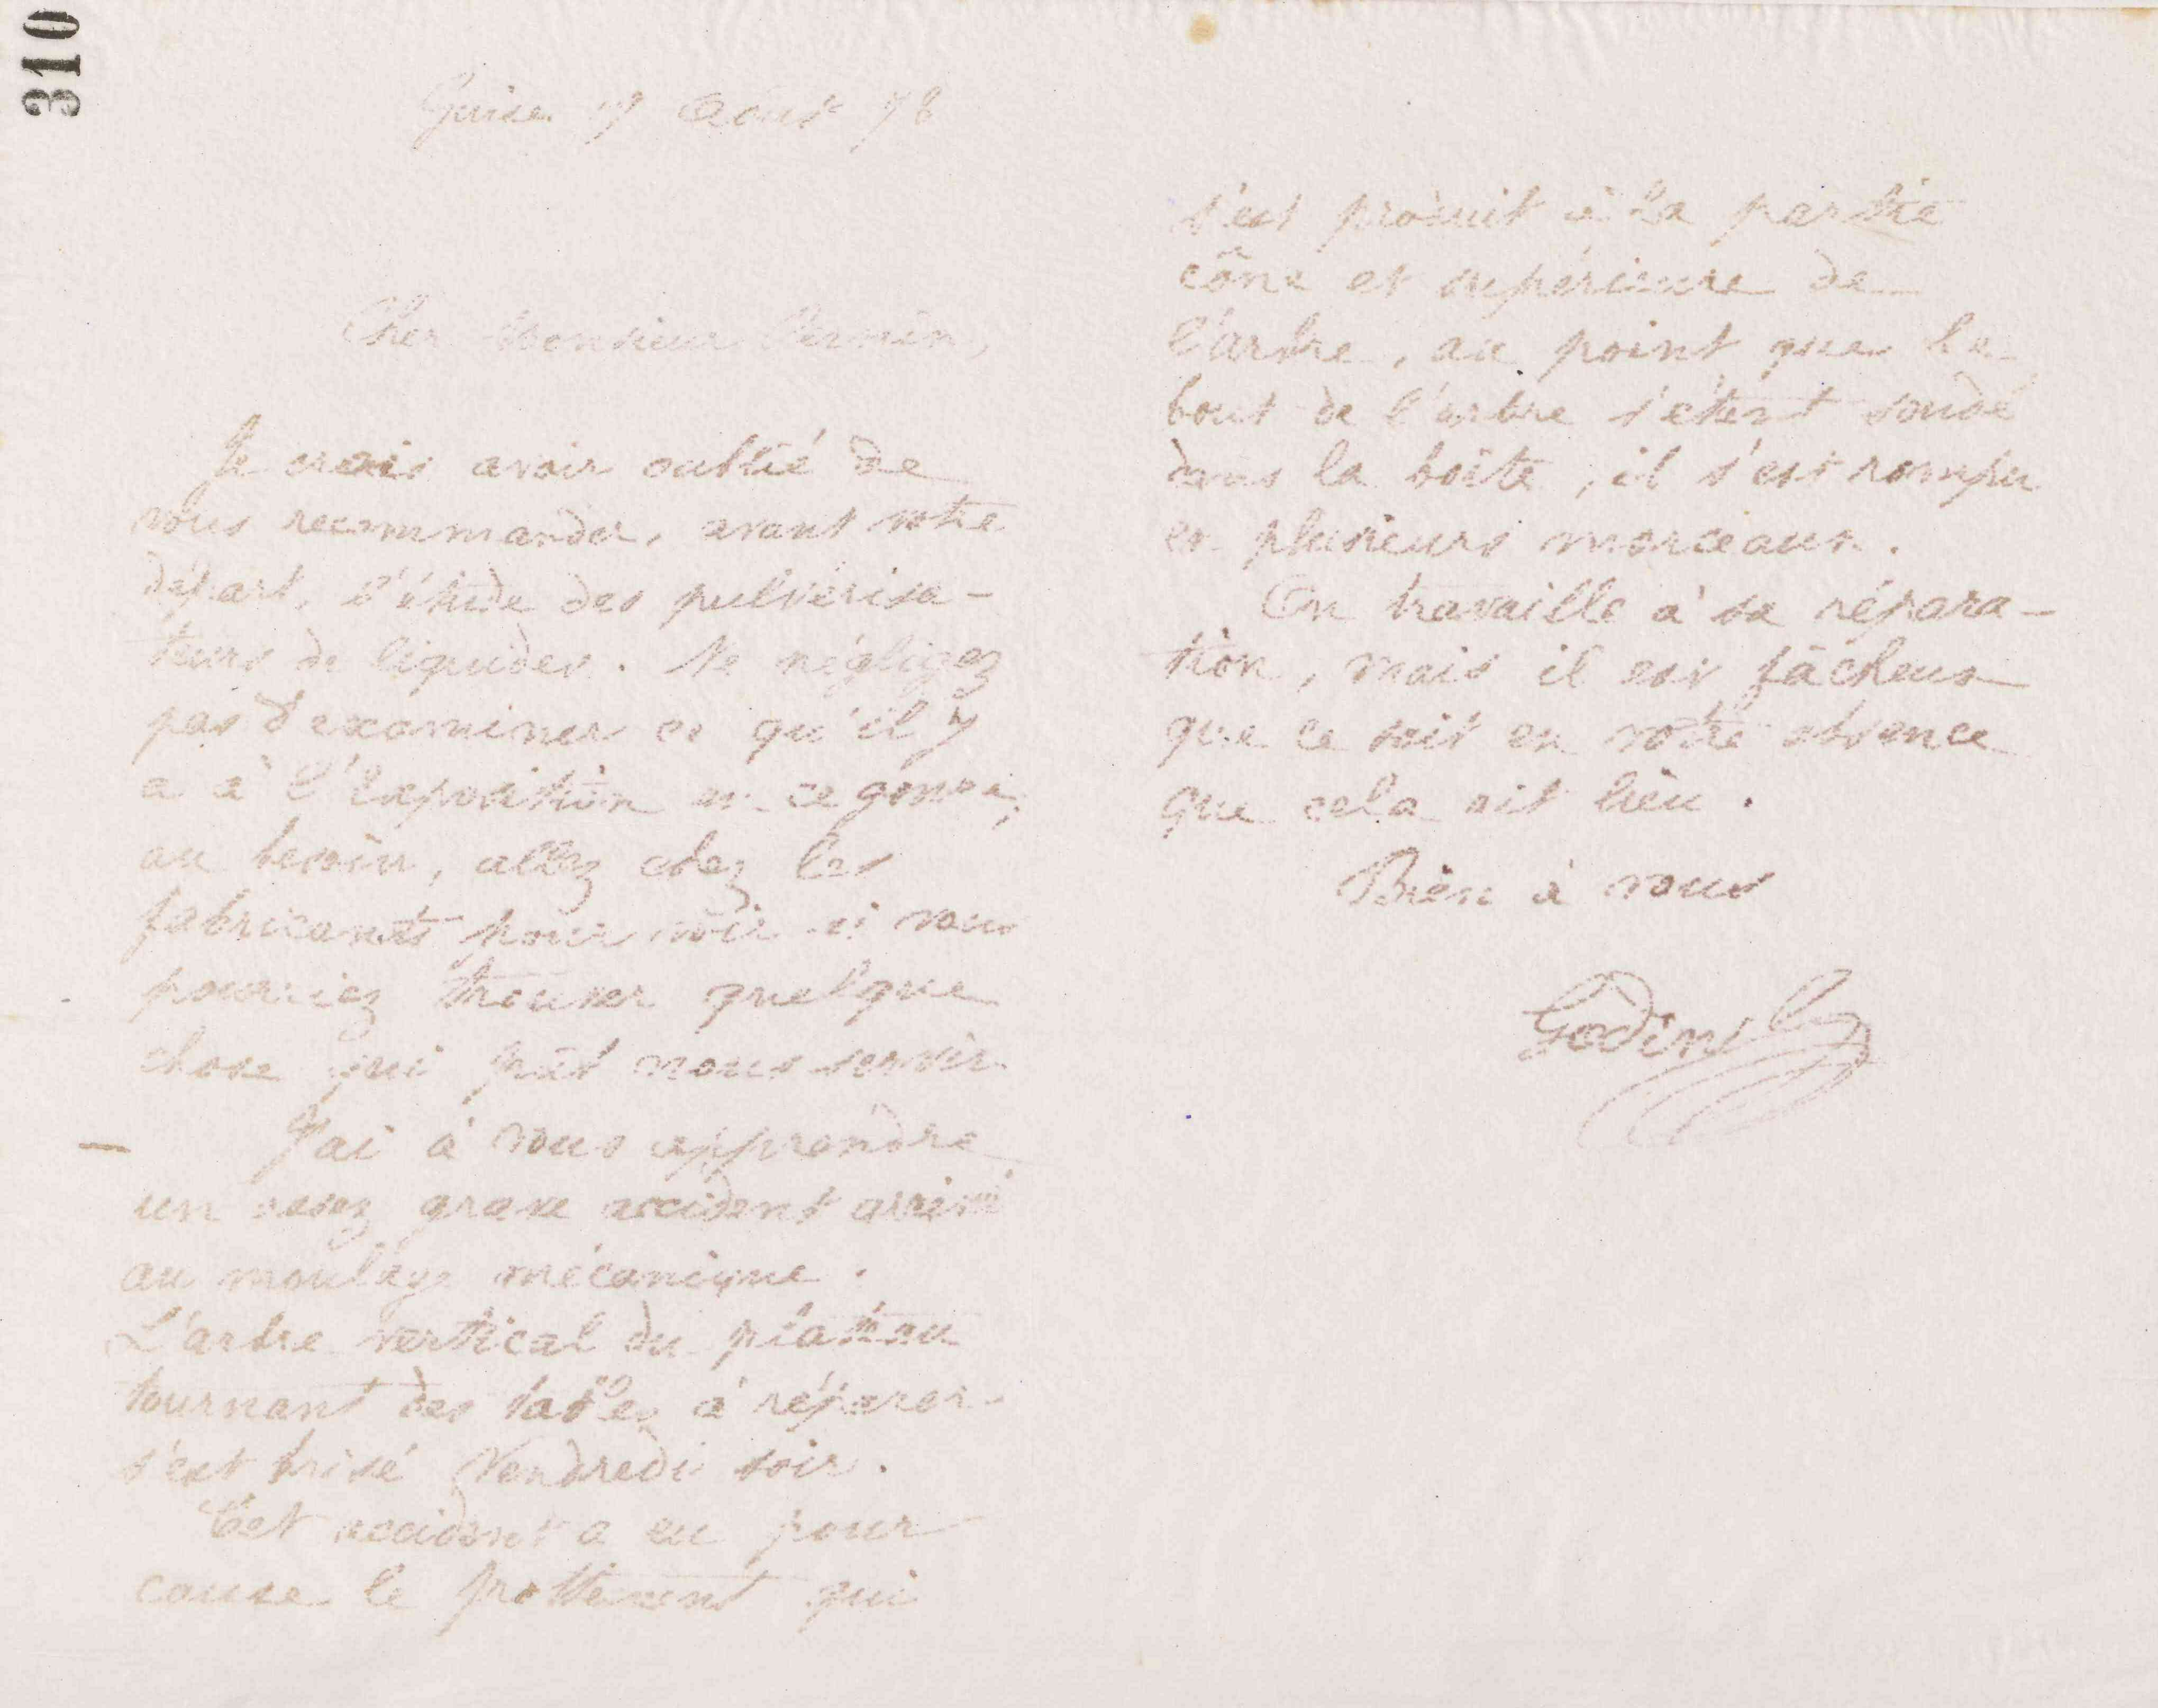 310
Guise 17 Août 78
Cher Monsieur Pernin,
Je crois avoir oublié de
vous recommander, avant votre
départ, l'étude des pulvérisa-
teurs de liquides. Ne négligez
pas d'examiner ce qu'il y
a à l'Exposition en ce genre;
au besoin, allez chez les
fabricants pour voir si vous
pourriez trouver quelque
chose qui pût nous servir.
— J'ai à vous apprendre
un assez grave accident arrivé
au moulage mécanique.
L'arbre vertical du plateau
tournant des sables à réparer
s'est brisé Vendredi soir.
Cet accident a eu pour
cause le frottement qui
s'est produit à la partie
cône et supérieure de
l'arbre, au point que le
bout de l'arbre s'étant soudé
dans la boîte, il s'est rompu
en plusieurs morceaux.
On travaille à sa répara-
tion, mais il est fâcheux
que ce soit en votre absence
que cela ait lieu.
Bien à vous
Godin